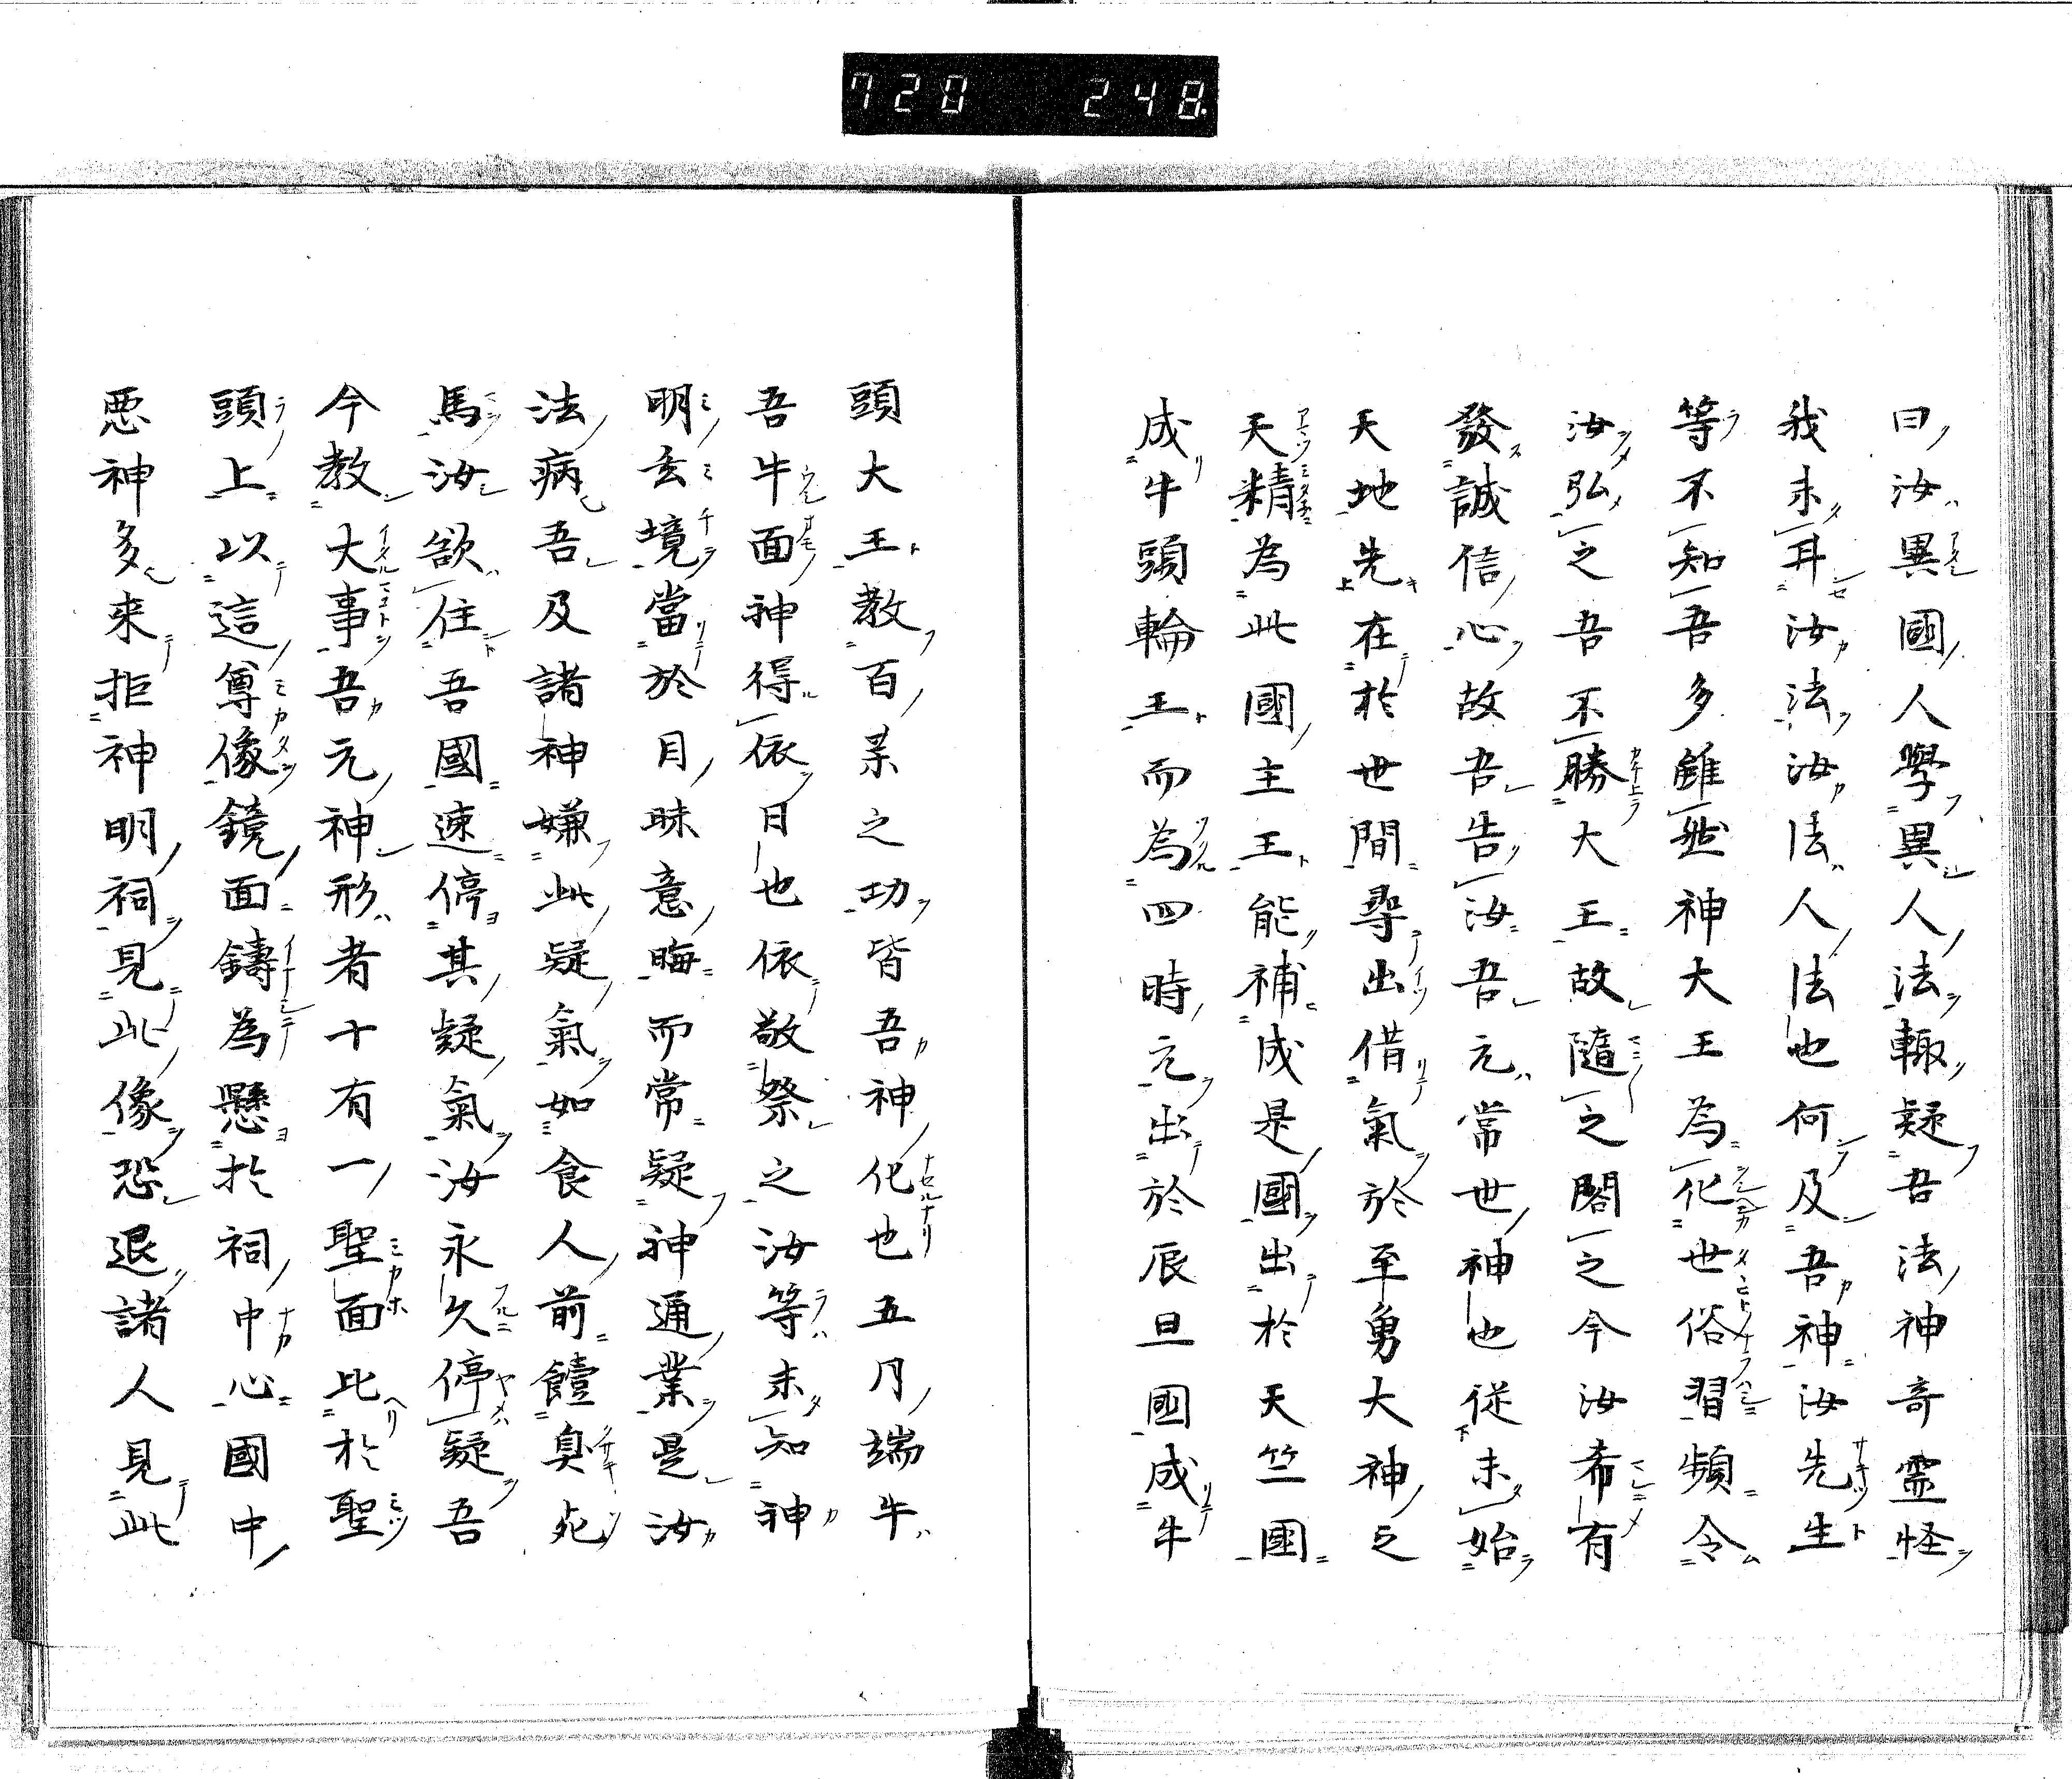 720 248
曰汝異國人學異人法輙疑吾法神奇霊怪
我未耳汝法汝法人法也何及吾神汝先生
等不知吾多雖然神大王為化世俗習頻令
汝弘之吾不勝大王故隨之閣之今汝希有
發誠信心故吾告汝吾元常世神也従未始
天地先在於世間尋出借氣於至勇大神之
天精為此國主王能補成是國出於天竺國
成牛頭輪王而為四時元出於辰旦國成牛
頭大王教百菜之功皆吾神化也五月端牛
吾牛面神得依日也依敬祭之汝等未知神
明玄境當於目昧意晦而常疑神通業是汝
法病吾及諸神嫌此疑氣如食人前饐臭死
馬汝欲住吾國速停其疑氣汝永久停疑吾
今教大事吾元神形者十有一聖面比於聖
頭上以這尊像鏡面鑄為懸於祠中心國中
悪神多来拒神明祠見此像恐退諸人見此